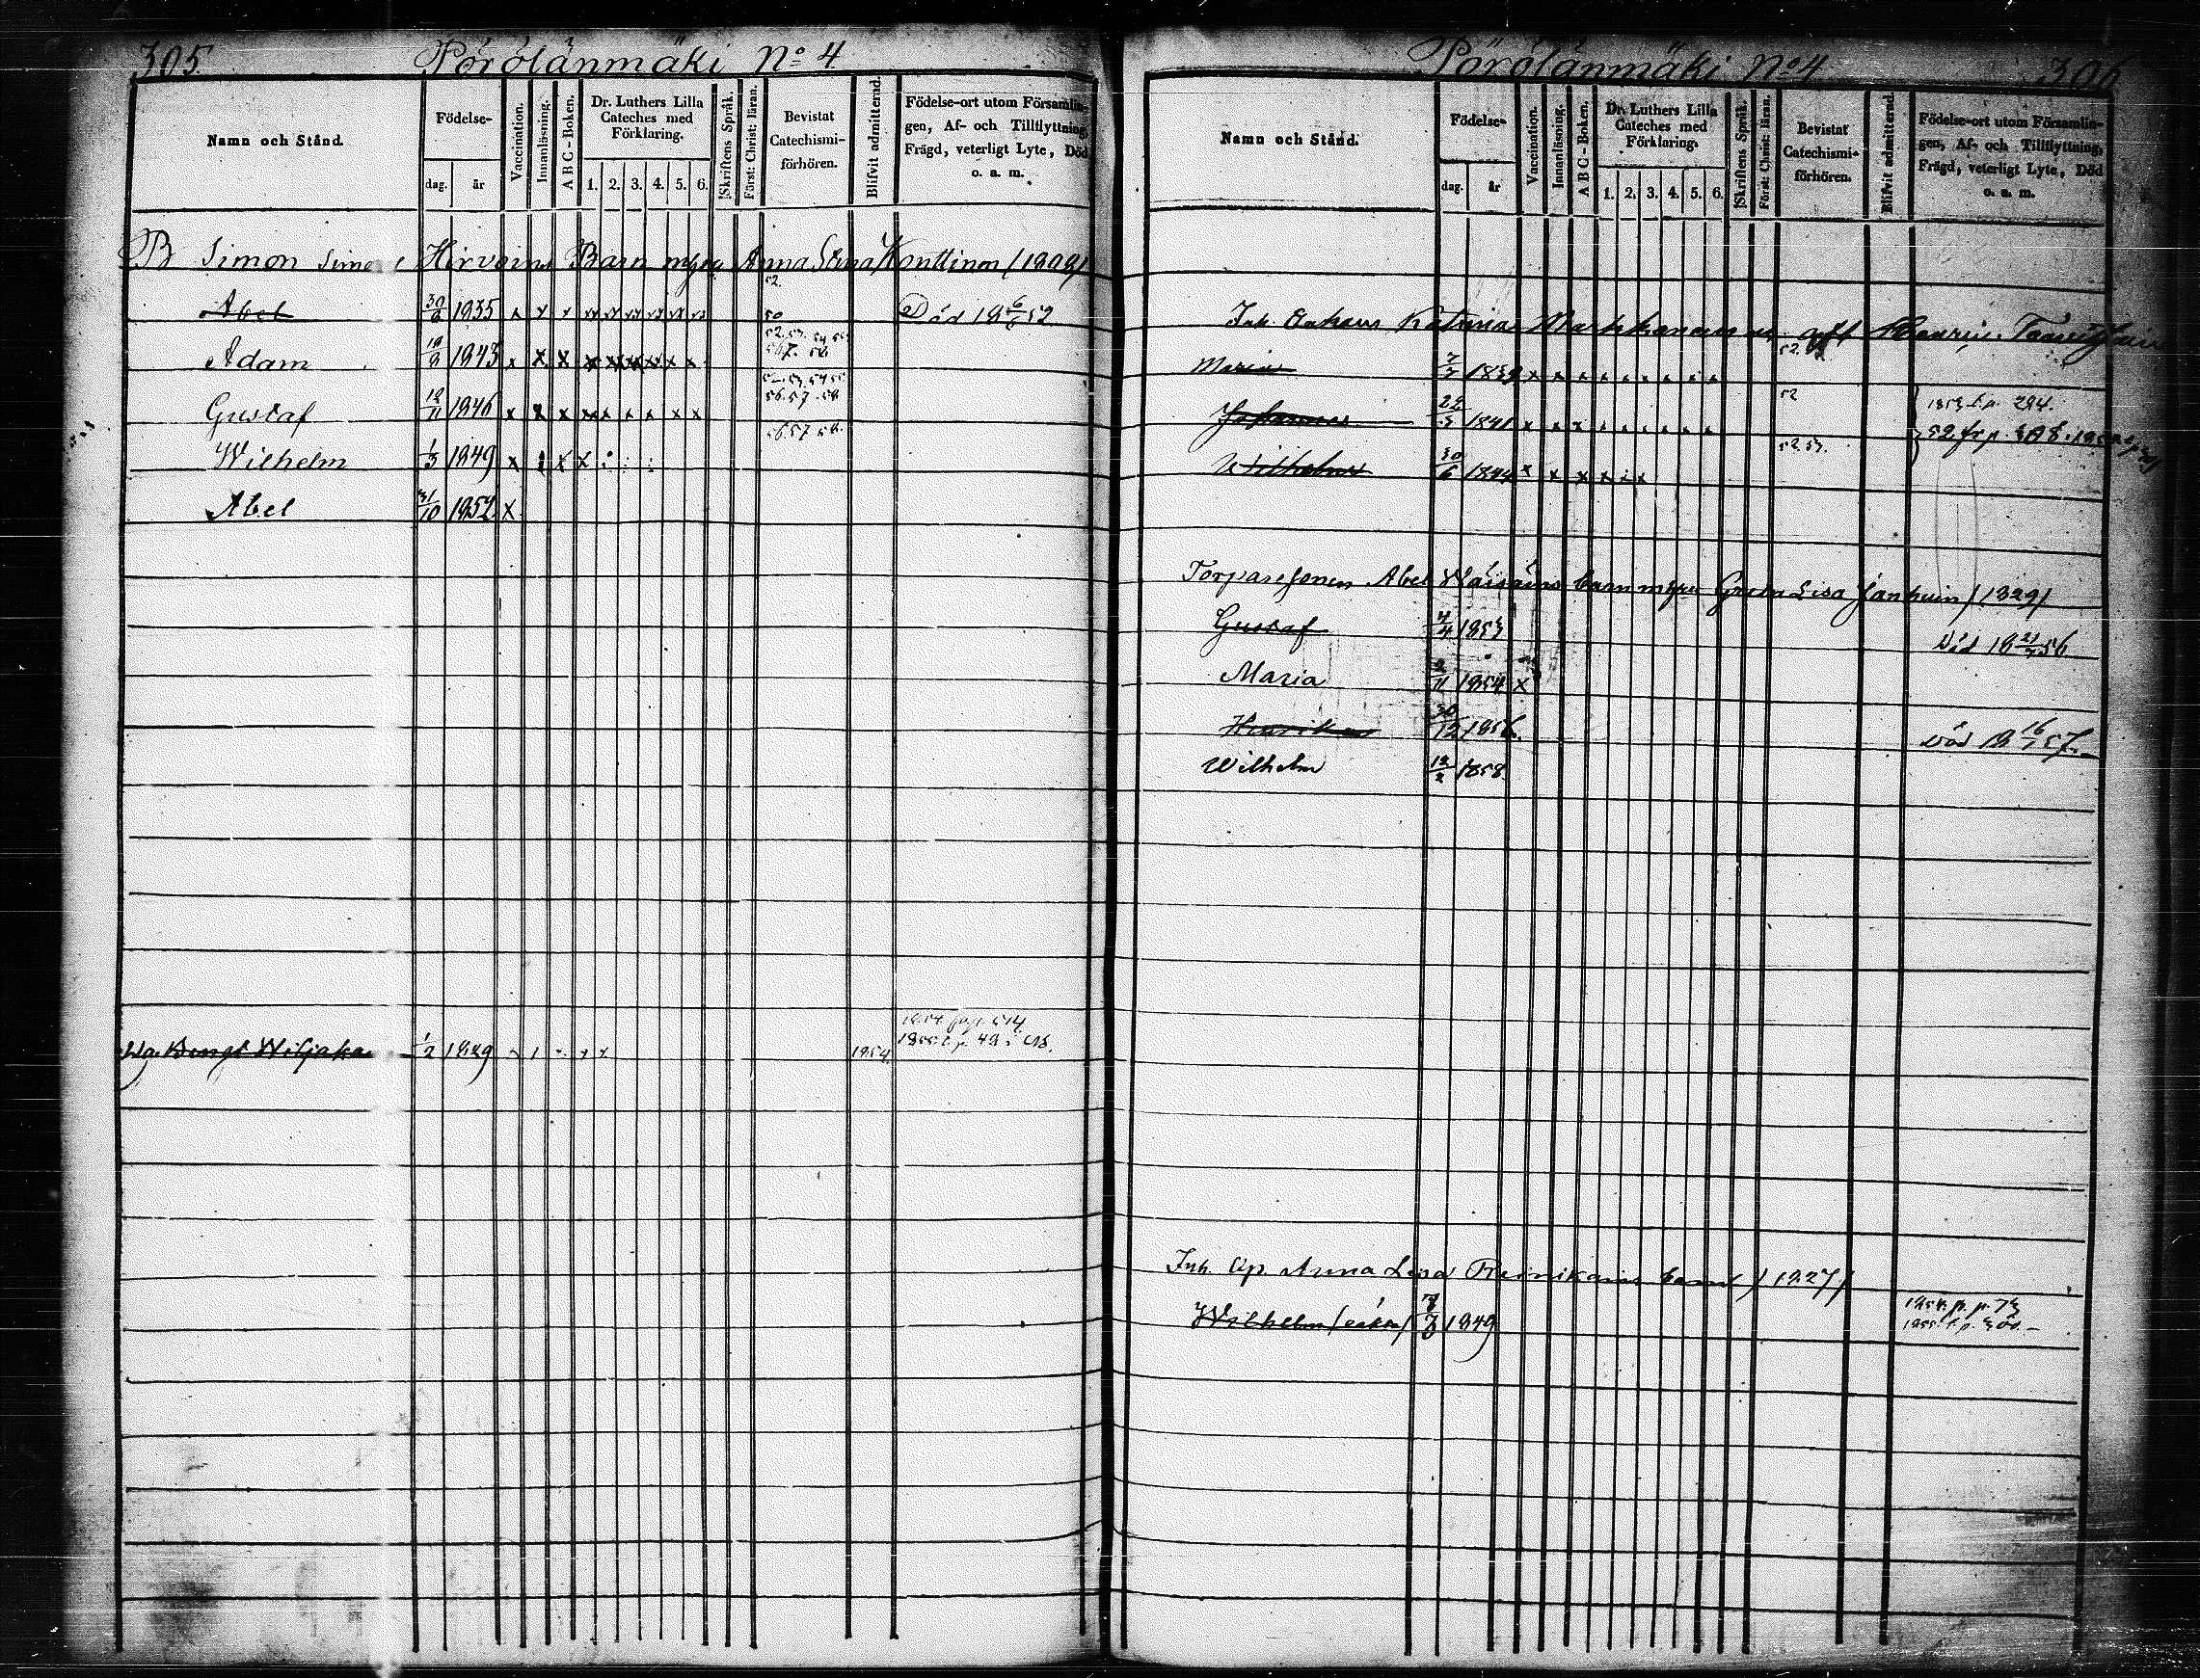 305.
Pörölänmäki No 4
Namn och Stånd.
Födelse-
dag. år
Vaccination.
Innanläsning.
A B C - Boken.
Dr. Luthers Lilla Cateches med Förklaring.
1. 2. 3. 4. 5. 6.
Skriftens Språk.
Först: Christ: läran.
Bevistat Catechismi-förhören.
Blifvit admitterad.
Födelse-ort utom Församlin-
gen, Af- och Tillflyttning,
Frägd, veterligt Lyte, Död
o. a. m.
B Simon Hirvoins Barn Anna Stina Konttinen /1809/
Abel 30/8 1835 x x x 52. 50 Död 18 6/6 52
Adam 19/8 1843 x x x x x x x x x 52. 53. 54 55 56.7. 58
Gustaf 12/11 1846 x x x x x x x x x 52. 53. 54 55 56. 57. 58
Wilhelm 1/3 1849 x x x 56. 57 58.
Abel 31/10 1852. x
Bengt Wiljaka 1/2 1829 1854. 1854. 514 1855. p. 49
Pörölänmäki No 4
306
Namn och Stånd.
Födelse-
dag. år
Vaccination.
Innanläsning.
A B C - Boken.
Dr. Luthers Lilla Cateches med Förklaring.
1. 2. 3. 4. 5. 6.
Skriftens Språk.
Först: Christ: läran.
Bevistat Catechismi-förhören.
Blifvit admitterad.
Födelse-ort utom Församlin-
gen, Af- och Tillflyttning,
Frägd, veterligt Lyte, Död
o. a. m.
Inh. Enkans Katrina
Maria 1839 x x x x x x x x x 52.
Johannes 1841 x x x x x x x x x 52 1853 t. p. 294.
Wilhelm 30/6 1844 x x x x x x 52. 53. 52 fr p. 308.
Torparesonen Abel Wäisäins barn Greta Lisa Janhuin /1829/
Gustaf 4/4 1853 Död 18 56.
Maria 2/11 1854 x
Henrik 30/12 1856. Död 18 16/1 57.
Wilhelm 12/2 1858.
Inh. Anna Lisa Reinikains barn /1827/
Wilhelm 1849 1854. fr. p. 73 1855. t. p.